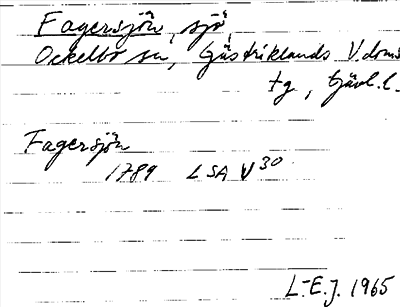 Fagersjön, sjö,
Ockelbo sn, Gästriklands V. doms
tg, Gävl. l.
Fagersjön
1789 LSA V 30
L.-E.J. 1965